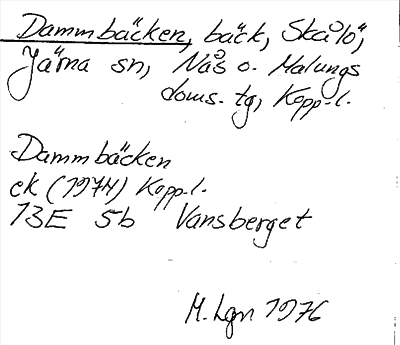 Dammbäcken, bäck, Skålö,
Järna sn, Nås o. Malungs
doms. tg, Kopp.l.
Dammbäcken
ek (1974) Kopp.l.
13E 5b Vansberget
M. Lgn 1976